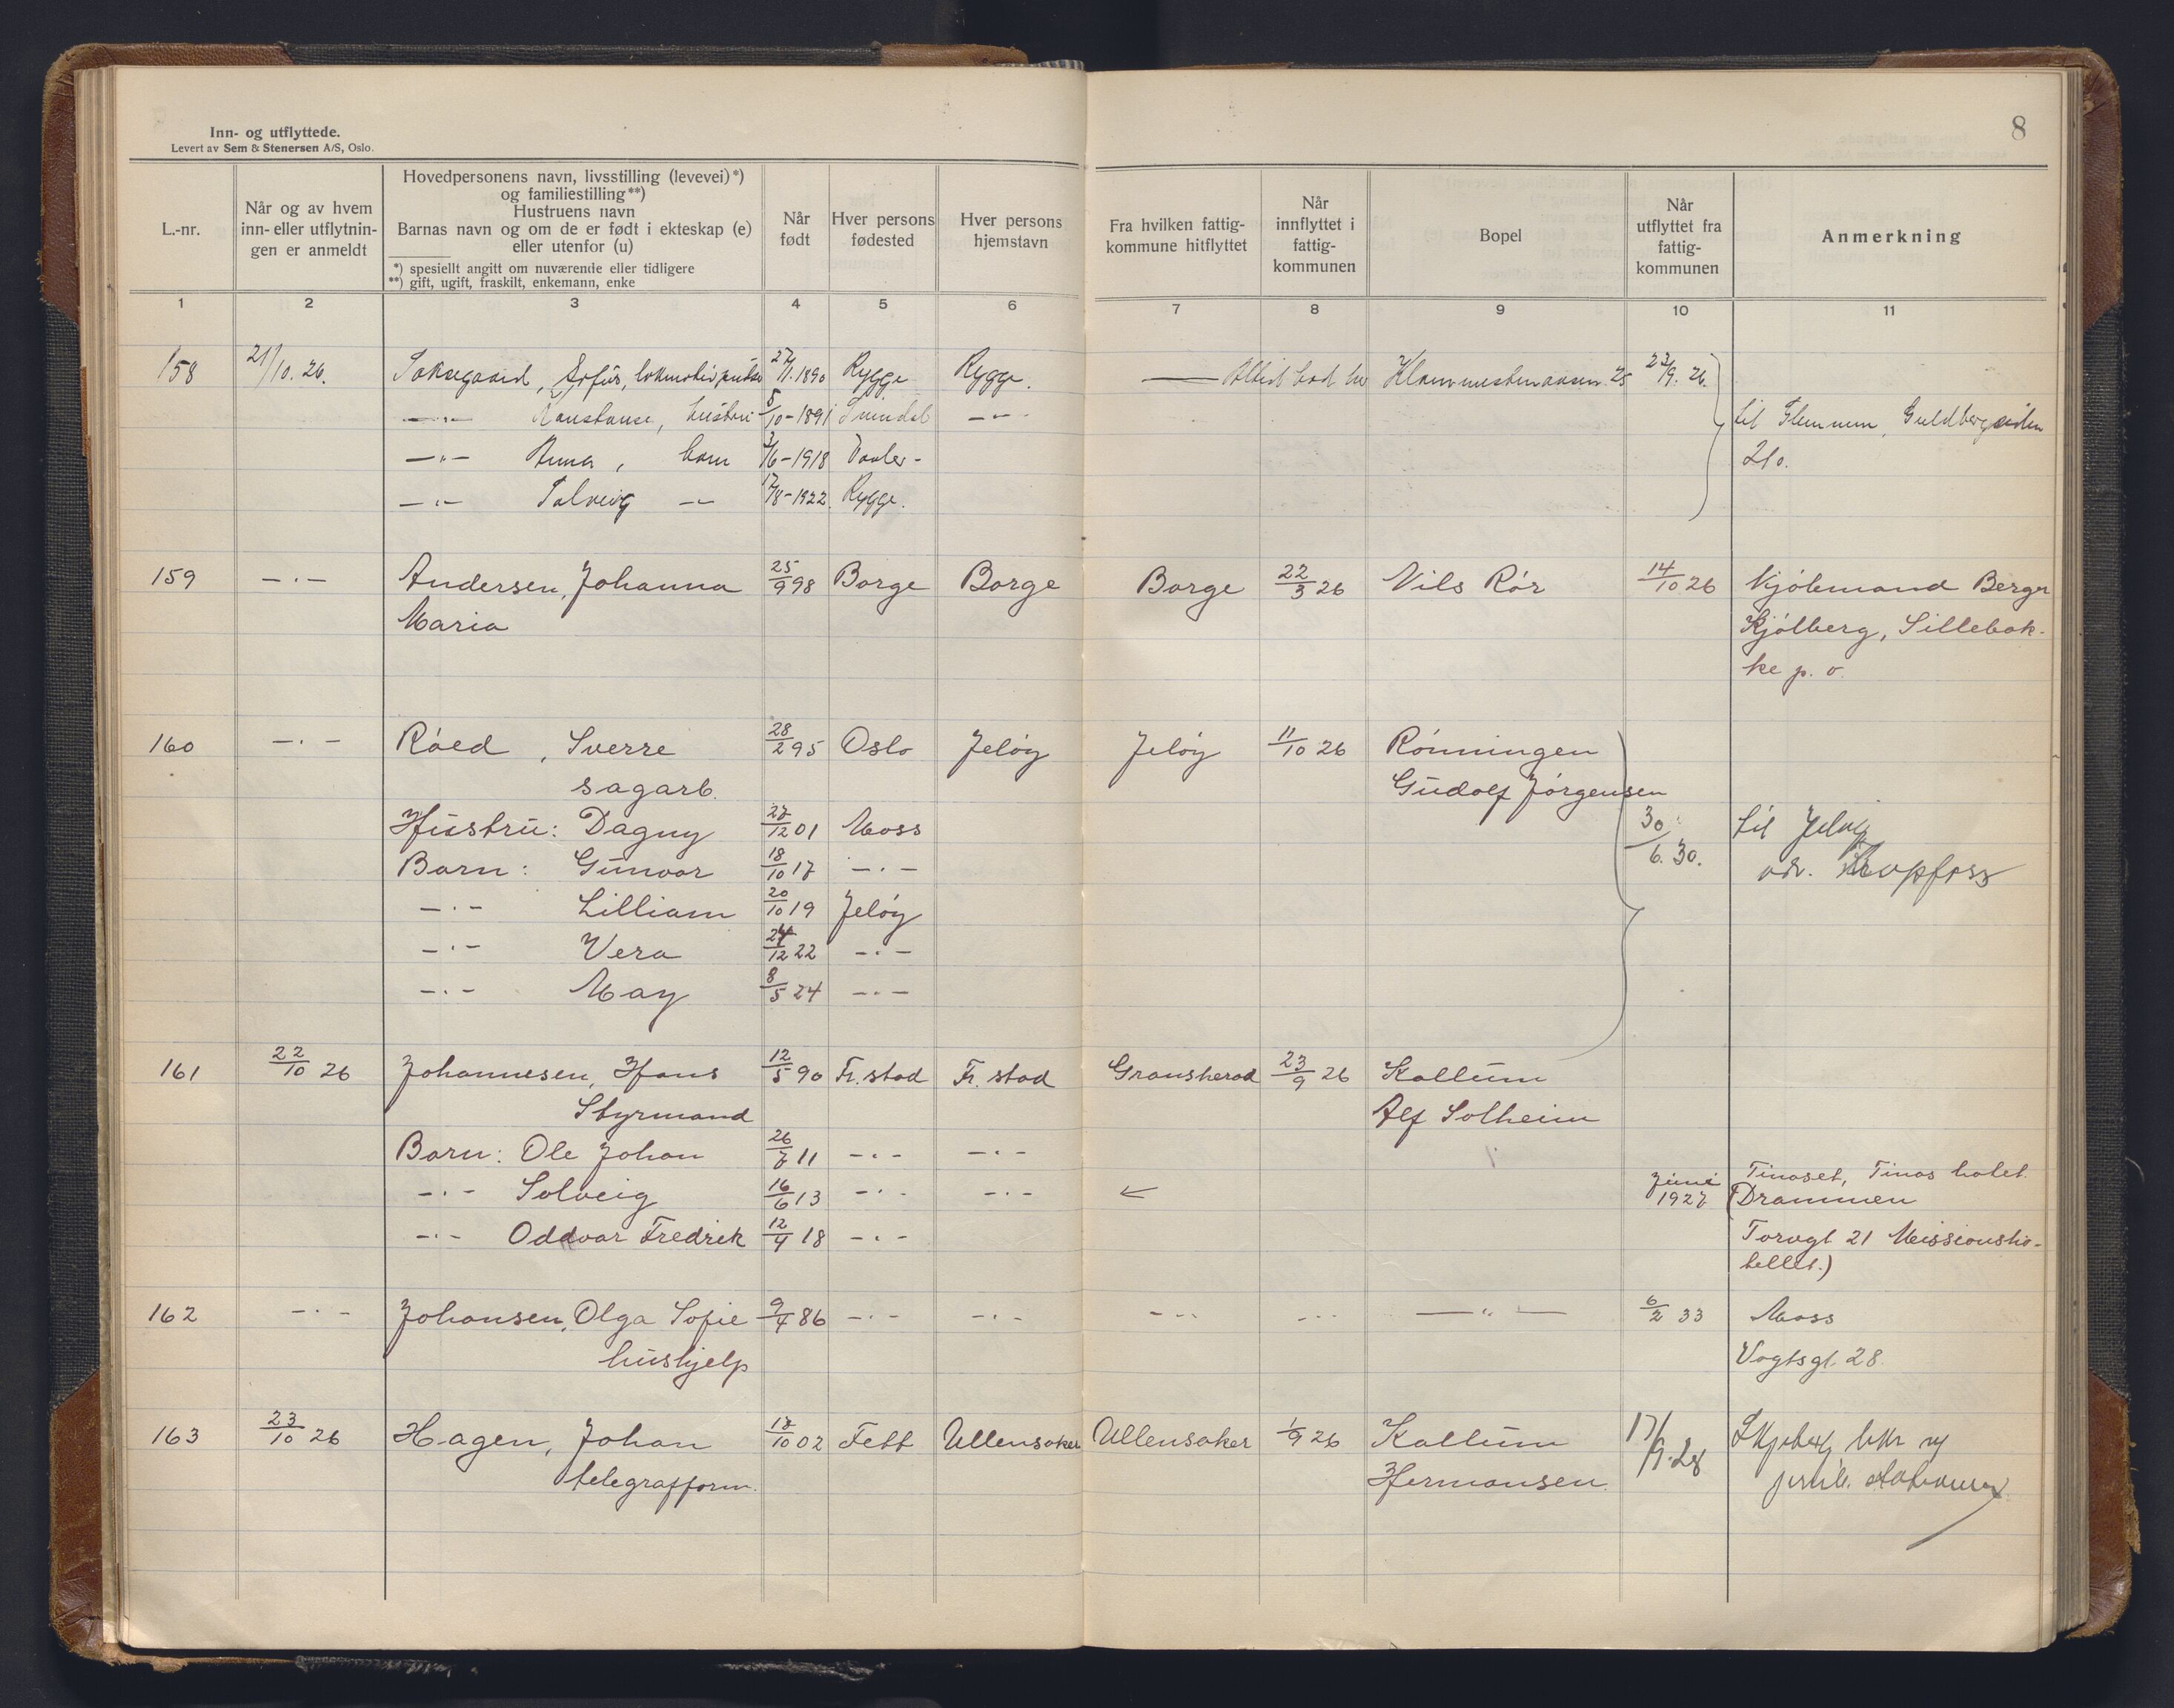 Inn- og utflyttede.
Levert av Sem & Stenersen A/S, Oslo.
8
L.-nr.
Når og av hvem
inn- eller utflytnin-
gen er anmeldt
Hovedpersonens navn, livsstilling (levevei) *)
og familiestilling **)
Hustruens navn
Barnas navn og om de er født i ekteskap (e)
eller utenfor (u)
*) spesiellt angitt om nuværende eller tidligere
**) gift, ugift, fraskilt, enkemann, enke
Når
født
Hver persons
fødested
Hver persons
hjemstavn
Fra hvilken fattig-
kommune hitflyttet
Når
innflyttet i
fattig-
kommunen
Bopel
Når
utflyttet fra
fattig-
kommunen
Anmerkning
1 2 3 4 5 6 7 8 9 10 11
158 21/10.26. 27/1.1890 Rygge Rygge. — Altid bod her 25 23/9.26.
—"— Konstanse, hustru 5/10-1891 Svindal —"— til Glemmen, Guldbergsiden
—"— Anna, barn 3/6-1918 Vaaler - 210.
—"— Solveig —"— 17/8-1922. Rygge.
159 —"— Andersen, Johanna 25/9 98 Borge Borge Borge 22/3 26 Nils Rør 14/10 26 Kjøbmand Berger
Maria Kjølberg, Sillebak-
ke p. o.
160 —"— Røed, Sverre 28/2 95 Oslo Jeløy Jeløy 11/10 26 Rønningen
sagarb. Gudolf Jørgensen
Hustru: Dagny 27/12 01 Moss 30/6.30. til Jeløy
Barn: Gunvor 18/10 17 —"— adr.
—"— Lilliam 20/10 19 Jeløy
—"— Vera 24/12 22 —"—
—"— May 8/5 24 —"—
161 22/10 26 Johannesen, Hans 12/5 90 Fr.stad Fr.stad Gransherad 23/9 26 Kallum
Styrmand Alf Solheim
Barn: Ole Johan 26/7 11 —"— —"—
—"— Solveig 16/6 13 —"— —"— ← juni 1927 Tinoset, Tinos hotel.
(Drammen
—"— Oddvar Fredrik 12/4 18 —"— Torvgt 21 Missionsho-
tellet.)
162 —"— Johansen, Olga Sofie 9/4 86 —"— —"— —"— —"— —"— 6/2 33 Moss
hushjelp Vogtsgt. 28.
163 23/10 26 Hagen, Johan 17/10 02 Fett Ullensaker Ullensaker 1/9 26 Kallum 17/9.28 Skjeberg
telegrafform. Hermansen.